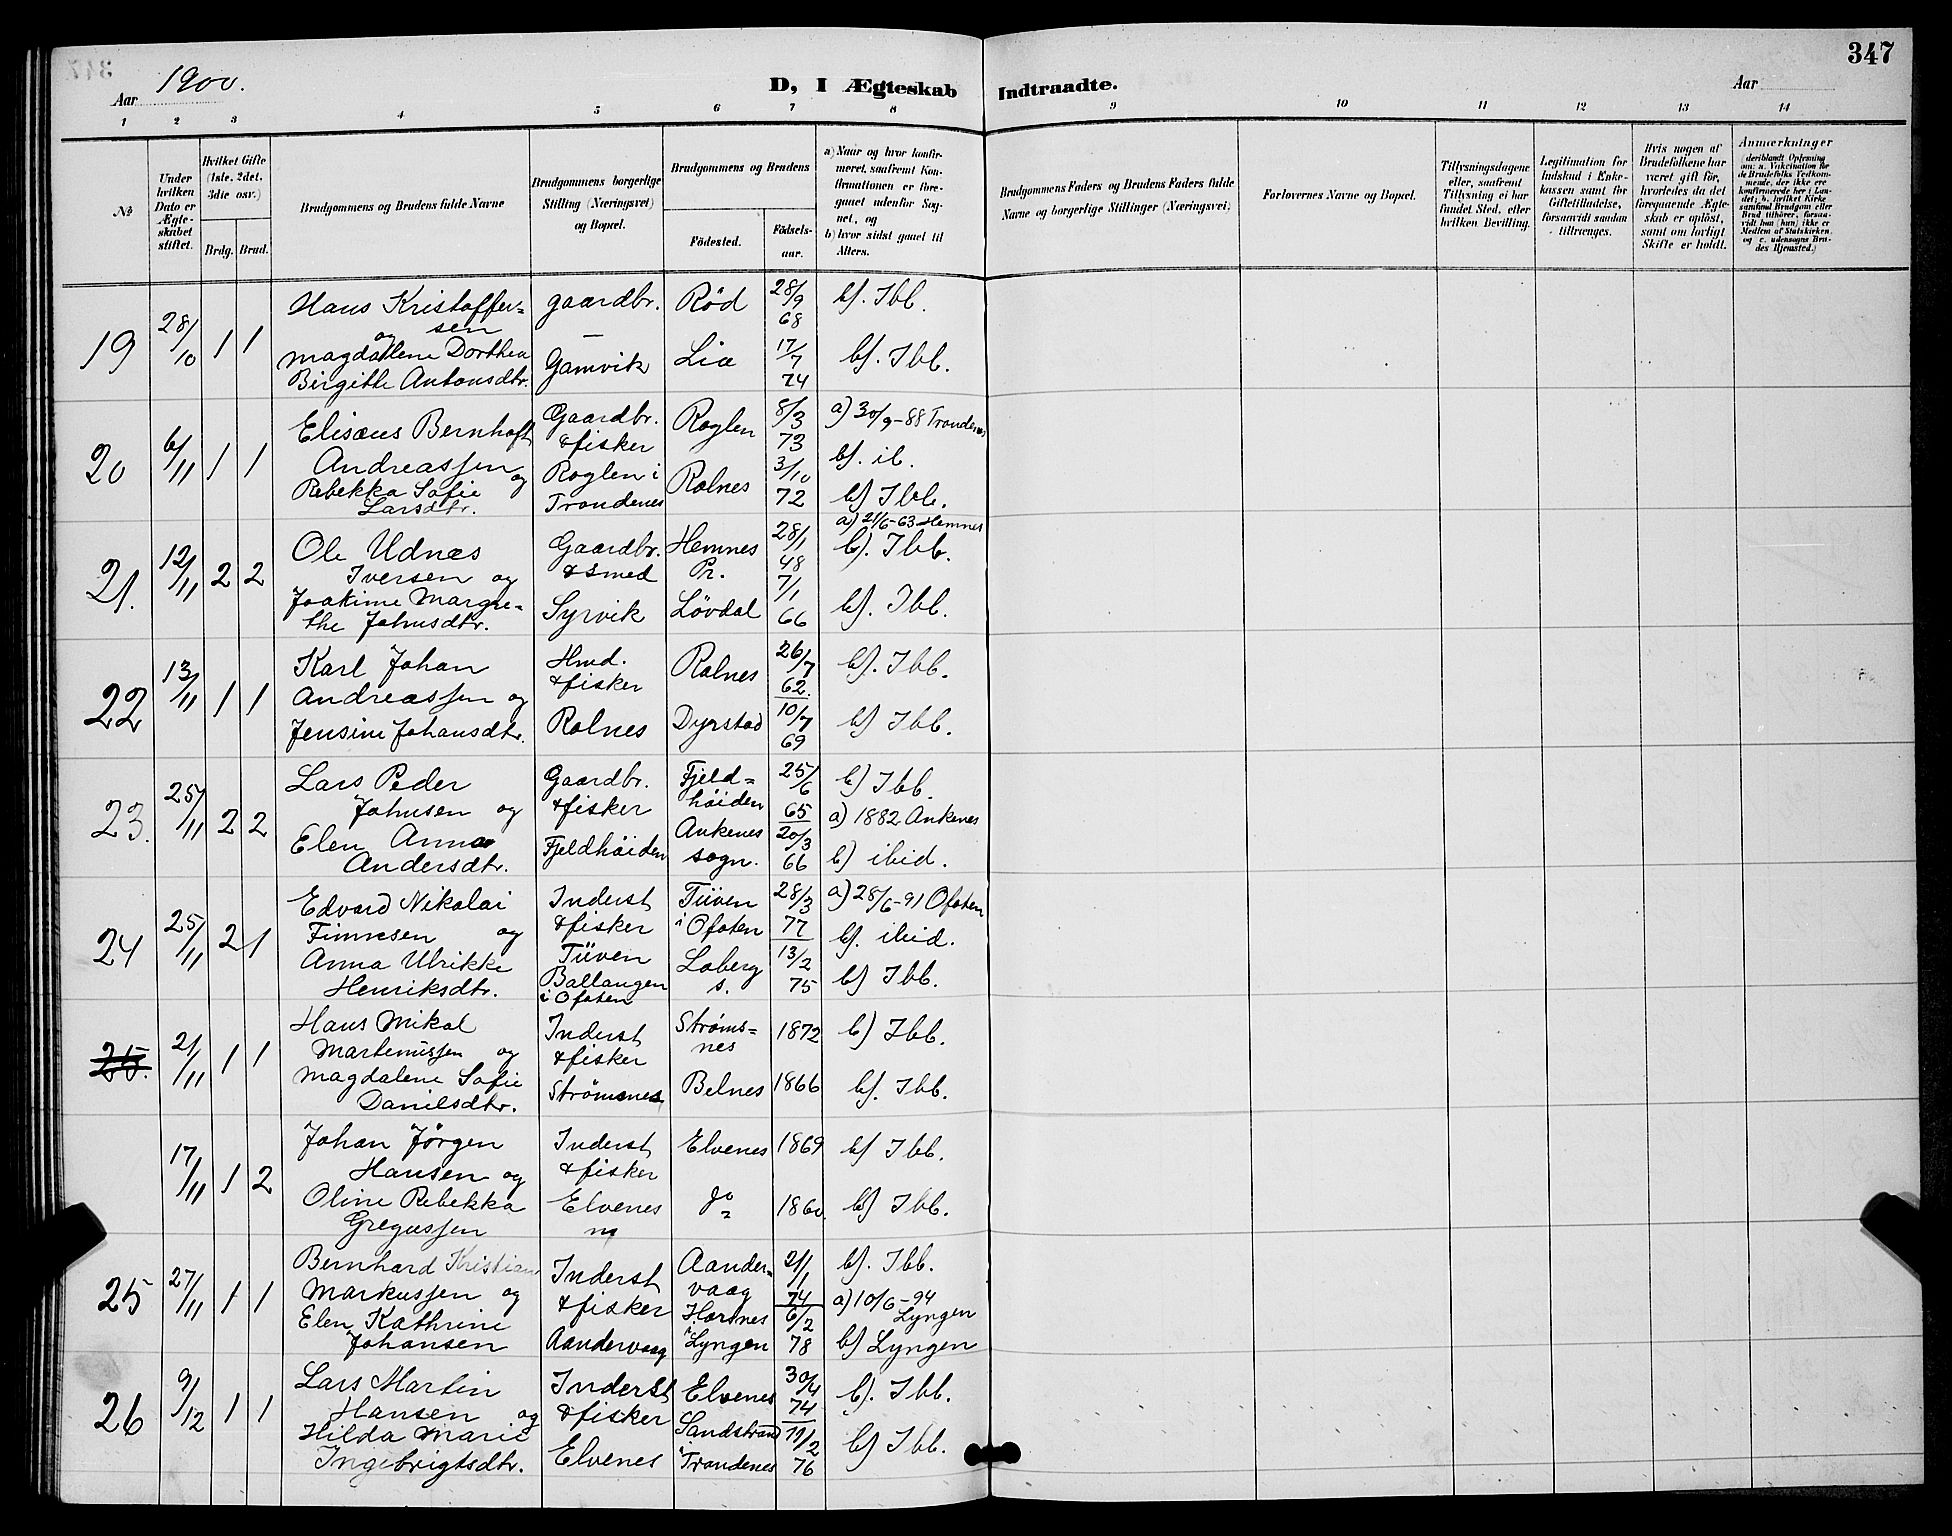 347
Aar 1900.
D, I Ægteskab Indtraadte.
Aar
1 2 3 4 5 6 7 8 9 10 11 12 13 14
№
Under hvilken Dato er Ægteskabet stiftet.
Hvilket Gifte (1ste, 2det, 3die osv.)
Brdg. Brud.
Brudgommens og Brudens fulde Navne
Brudgommens borgerlige Stilling (Næringsvei) og Bopæl.
Brudgommens og Brudens
Födested. Födselsaar.
a) Naar og hvor konfirmeret, saafremt Konfirmationen er foregaaet udenfor Sognet, og
b) hvor sidst gaaet til Alters.
Brudgommens Faders og Brudens Faders fulde Navne og borgerlige Stillinger (Næringsvei)
Forlovernes Navne og Bopæl.
Tillysningsdagene eller, saafremt Tillysning ei har fundet Sted, efter hvilken Bevilling.
Legitimation for Indskud i Enkekassen samt for Giftetilladelse, forsaavidt saadan tiltrænges.
Hvis nogen af Brudefolkene har været gift før, hvorledes da det foregaaende Ægteskab er opløst, samt om lovligt Skifte er holdt.
Anmærkninger
(deriblandt Oplysning om: a. Vakcination for de Brudefolks Vedkommende, der ikke ere konfirmerede her i Landet; b. hvilket Kirkesamfund Brudgom eller Brud tilhører, forsaavidt han (hun) ikke er Medlem af Statskirken, og c. udensogns Brudes Hjemsted.)
19 28/10 1 1
Hans Kristoffersen
og
Magdalene Dorthea
Birgitte Antonsdtr.
gaardbr.
—
Gamvik
Rød 28/9 68 b). Ibb.
Lia 17/7 74 b). Ibb.
20 6/11 1 1
Elisæus Bernhoft
Andreassen og
Rebekka Sofie
Larsdtr.
Gaardbr.
& fisker
Roglen i
Trondenes
Roglen 8/3 73 a) 30/9-88 Trondenes
b). ib.
Rolnes 3/10 72 b) Ibb.
21. 12/11 2 2
Ole Udnæs
Iversen og
Joakime Margrethe Johnsdtr.
Gaardbr.
& Smed
Syrvik
Hemnes Pr. 28/1 48 a) 21/6-63 Hemnes
b). Ibb.
Lövdal 7/1 66 b). Ibb.
22 13/11 1 1
Karl Johan
Andreassen og
Jensine Johansdtr.
Hmd.
& fisker
Rolnes
Rolnes 26/7 62. b). Ibb.
Dyrstad 10/7 69 b) Ibb.
23. 25/11 2 2
Lars Peder
Johnsen og
Elen Anna
Andersdtr.
Gaardbr.
& fisker
Fjeldhöiden
Fjeldhöiden 25/6 65 b) Ibb.
Ankenes sogn. 20/3 66 a) 1882 Ankenes
b) ibid.
24 25/11 2 1
Edvard Nikolai
Finnesen og
Anna Ulrikke
Henriksdtr.
Inderst
& fisker
Tiiven
Ballangen
i Ofoten
Tiiven i Ofoten 28/3 77 a) 28/6-91 Ofoten
b). ibid.
Loberg s. 13/2 75 b) Ibb.
25. 21/11 1 1
Hans Mikal
Martenussen og
Magdalene Sofie
Danielsdtr.
Inderst
& fisker
Strømsnes
Strømsnes 1872 b) Ibb.
Belnes 1866 b). Ibb.
17/11 1 2
Johan Jörgen
Hansen og
Oline Rebekka
Gregussen
Inderst
& fisker
Elvenes
Elvenes 1869 b) Ibb.
do 1860. b) Ibb.
25 27/11 1 1
Bernhard Kristian
Markussen og
Elen Kathrine
Johansen
Inderst
& fisker
Aandervaag
Aandervaag 21/1 74 b). Ibb.
Hornes i Lyngen 6/2 78 a) 10/6-94 Lyngen
b) Lyngen
26 9/12 1 1
Lars Martin
Hansen og
Hilda Marie
Ingebrigtsdtr.
Inderst
& fisker
Elvenes
Elvenes 30/4 74 b). Ibb.
Sandstrand i Trondenes 11/2 76 b) Ibb.